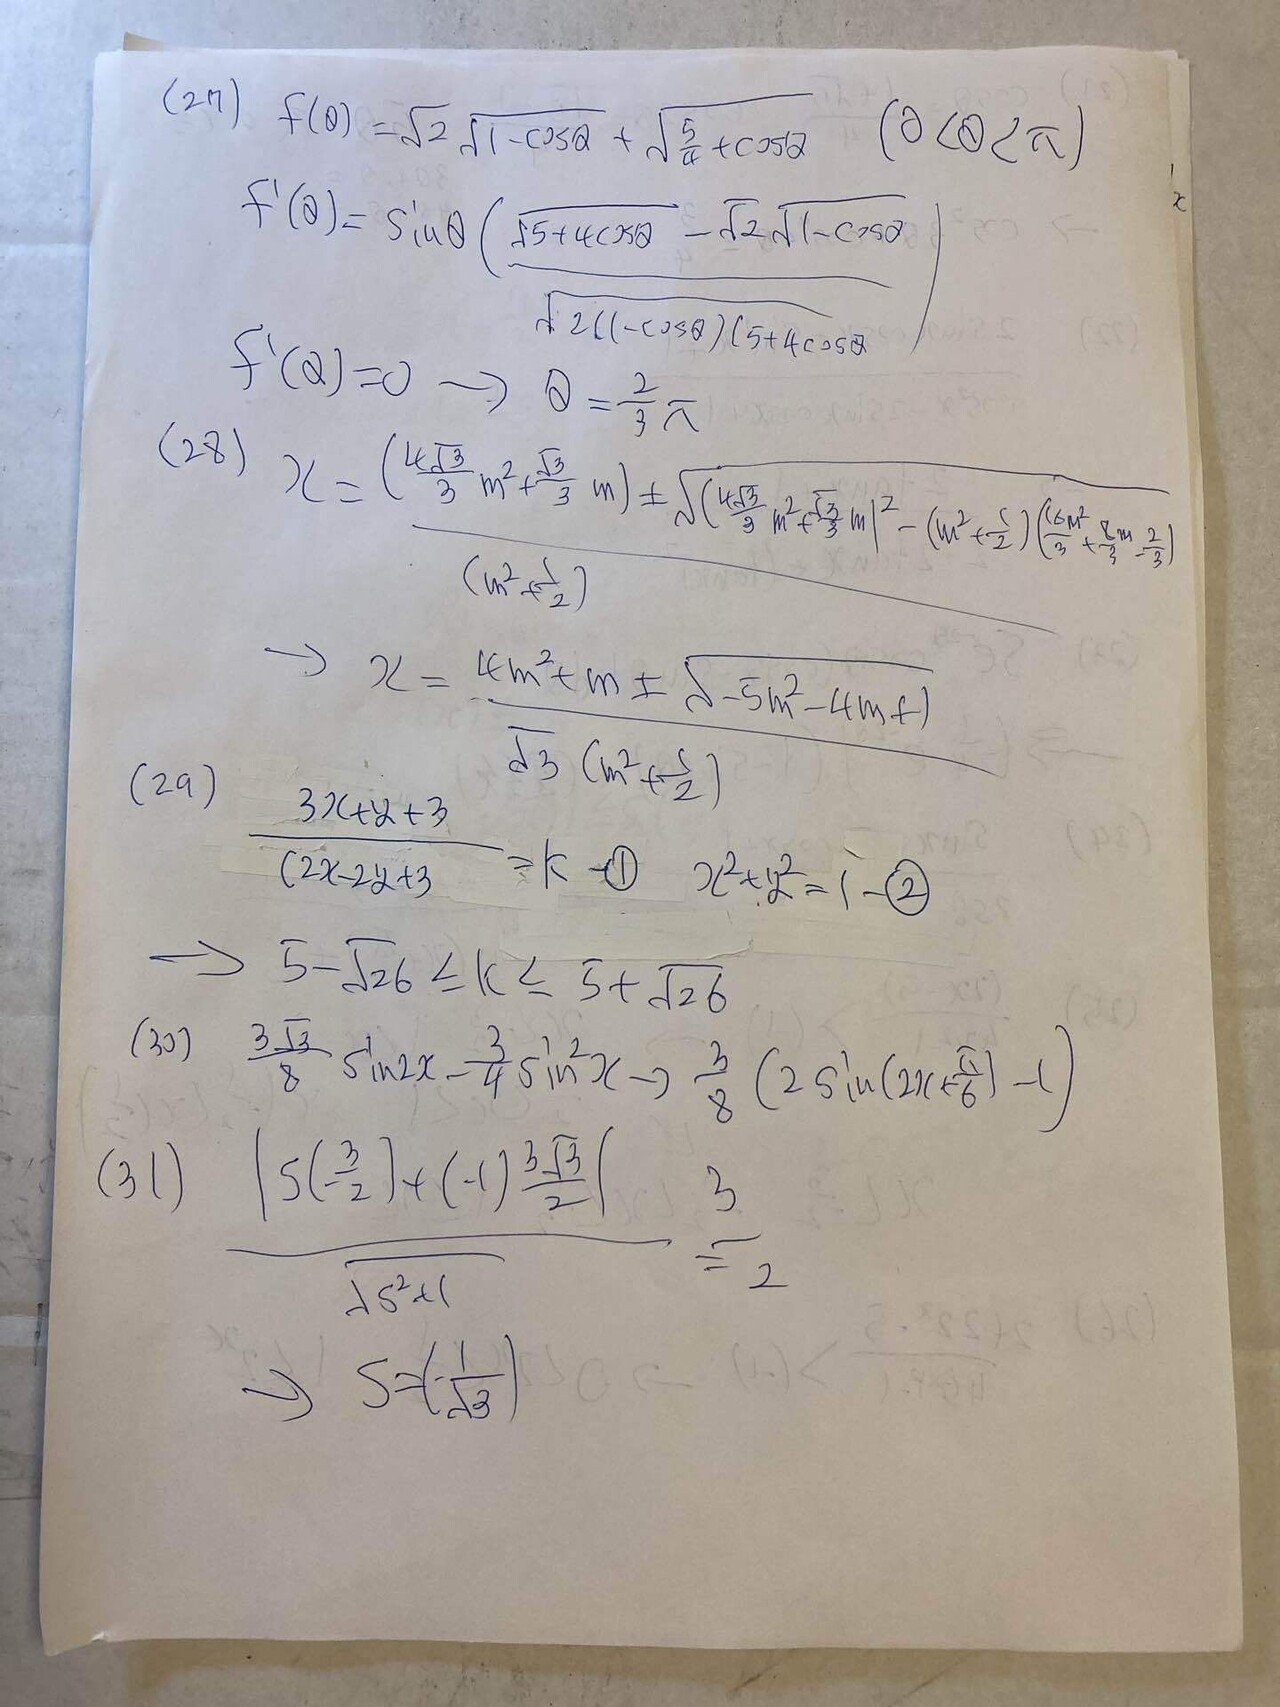 (27) f(θ) = √2 √(1-cosθ) + √(5/4 + cosθ) (0<θ<π)
f'(θ) = sinθ ( (√(5+4cosθ) - √2 √(1-cosθ)) / √(2(1-cosθ)(5+4cosθ) )
f'(θ)=0 → θ = 2/3 π
(28) x = ((4√3/3 m² + √3/3 m) ± √((4√3/3 m² + √3/3 m)² - (m² + 1/2)(16m²/3 + 8/3 m - 2/3))) / (m² + 1/2)
→ x = (4m² + m ± √(-5m² - 4m + 1)) / (√3 (m² + 1/2))
(29) (3x+y+3) / (2x-2y+3 = k -① x²+y² = 1 -②
→ 5-√26 ≤ k ≤ 5+√26
(30) 3√3/8 sin2x - 3/4 sin²x → 3/8 (2sin(2x+π/6) - 1)
(31) |5(-3/2) + (-1) 3√3/2| / √(5²+1) = 3/2
→ 5 = (-1/√3)